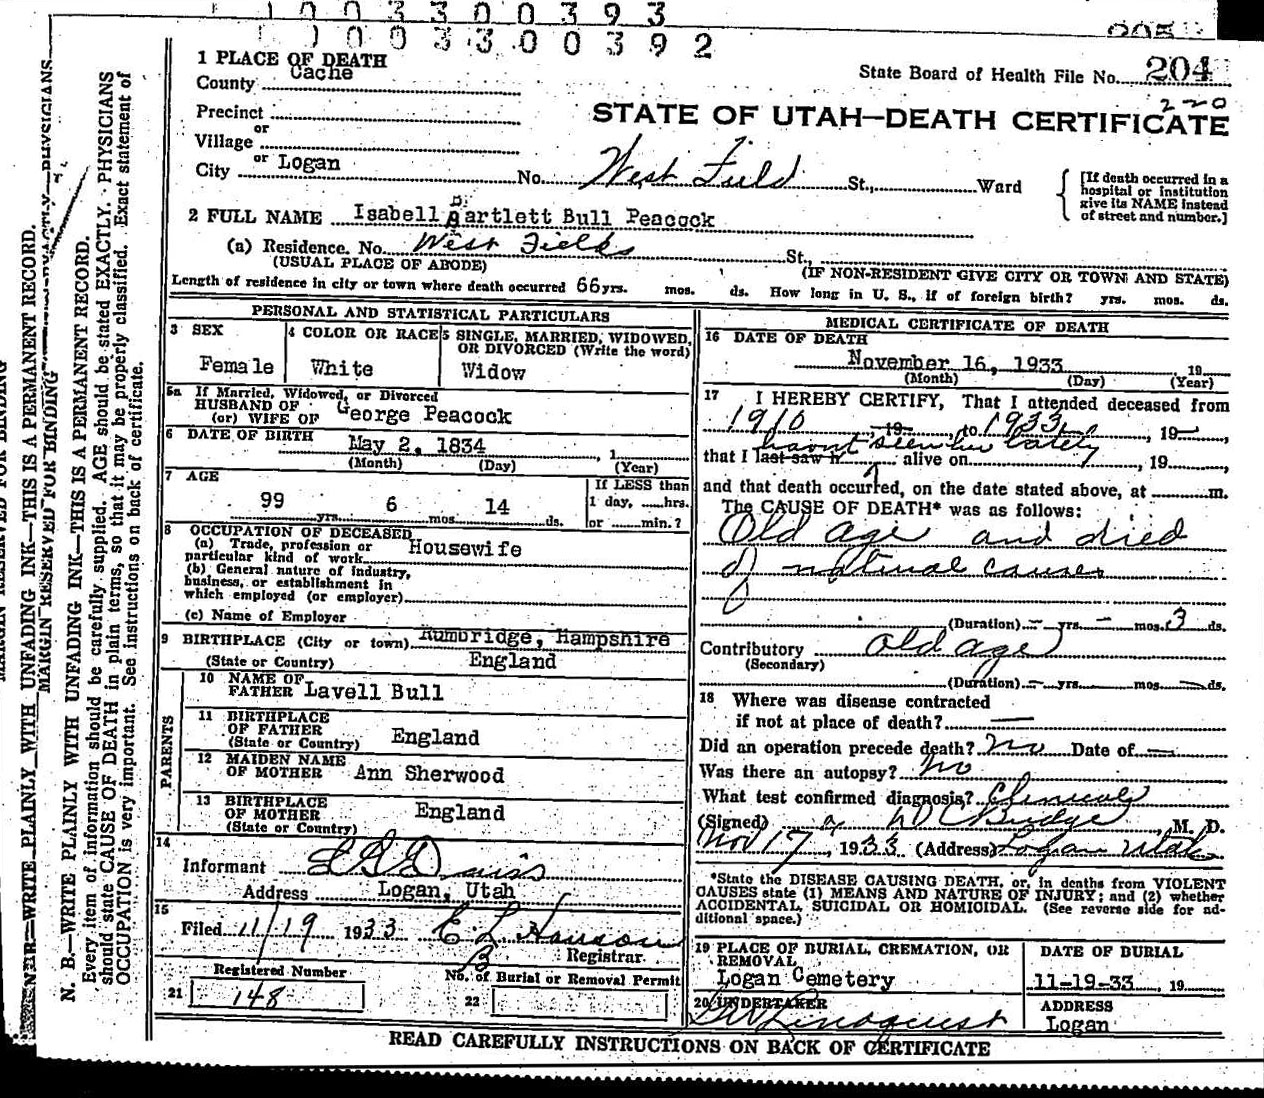 1 0 0 3 3 0 0 3 9 3
1 0 0 3 3 0 0 3 9 2
205
1 PLACE OF DEATH
County Cache
State Board of Health File No. 204
220
Precinct
STATE OF UTAH—DEATH CERTIFICATE
or
Village
or
City Logan No. West Field St., Ward
[If death occurred in a
hospital or institution
give its NAME instead
of street and number.]
2 FULL NAME Isabell Bartlett Bull Peacock
(a) Residence. No. West Fields St.,
(USUAL PLACE OF ABODE) (IF NON-RESIDENT GIVE CITY OR TOWN AND STATE)
Length of residence in city or town where death occurred 66 yrs. mos. ds. How long in U. S., if of foreign birth? yrs. mos. ds.
PERSONAL AND STATISTICAL PARTICULARS
3 SEX
Female
4 COLOR OR RACE
White
5 SINGLE, MARRIED, WIDOWED,
OR DIVORCED (Write the word)
Widow
5a If Married, Widowed, or Divorced
HUSBAND OF
(or) WIFE OF George Peacock
6 DATE OF BIRTH May 2, 1834 , 1
(Month) (Day) (Year)
7 AGE
99 yrs. 6 mos. 14 ds.
If LESS than
1 day, hrs.
or min.?
8 OCCUPATION OF DECEASED
(a) Trade, profession or
particular kind of work Housewife
(b) General nature of industry,
business, or establishment in
which employed (or employer)
(c) Name of Employer
9 BIRTHPLACE (City or town) Rumbridge, Hampshire
(State or Country) England
PARENTS
10 NAME OF
FATHER Lavell Bull
11 BIRTHPLACE
OF FATHER
(State or Country) England
12 MAIDEN NAME
OF MOTHER Ann Sherwood
13 BIRTHPLACE
OF MOTHER
(State or Country) England
14
Informant Davis
Address Logan, Utah
15
Filed 11/19 1933 E L Hanson
Registrar.
B
Registered Number
21 148
No. of Burial or Removal Permit
22
MEDICAL CERTIFICATE OF DEATH
16 DATE OF DEATH
November 16, 1933 19
(Month) (Day) (Year)
17 I HEREBY CERTIFY, That I attended deceased from
1910 , 19 , to 1933 , 19 ,
havnt seen her lately
that I last saw h alive on , 19 ,
and that death occurred, on the date stated above, at m.
The CAUSE OF DEATH* was as follows:
Old age and died
of natural causes
(Duration) — yrs. — mos. 3 ds.
Contributory old age
(Secondary)
(Duration) — yrs. — mos. — ds.
18 Where was disease contracted
if not at place of death? —
Did an operation precede death? no Date of —
Was there an autopsy? no
What test confirmed diagnosis? Clinical
(Signed) D C Budge , M. D.
Nov 17 , 1933 (Address) Logan Utah
*State the DISEASE CAUSING DEATH, or, in deaths from VIOLENT
CAUSES state (1) MEANS AND NATURE OF INJURY; and (2) whether
ACCIDENTAL, SUICIDAL OR HOMICIDAL. (See reverse side for ad-
ditional space.)
19 PLACE OF BURIAL, CREMATION, OR
REMOVAL
Logan Cemetery
DATE OF BURIAL
11-19-33 , 19
20 UNDERTAKER
Lindquist
ADDRESS
Logan
READ CAREFULLY INSTRUCTIONS ON BACK OF CERTIFICATE
MARGIN RESERVED FOR BINDING
WRITE PLAINLY WITH UNFADING INK—THIS IS A PERMANENT RECORD.
MARGIN RESERVED FOR BINDING
N. B.—WRITE PLAINLY WITH UNFADING INK—THIS IS A PERMANENT RECORD.
Every item of information should be carefully supplied. AGE should be stated EXACTLY. PHYSICIANS
should state CAUSE OF DEATH in plain terms, so that it may be properly classified. Exact statement of
OCCUPATION is very important. See instructions on back of certificate.